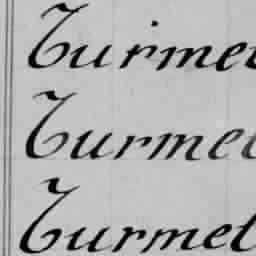 Turmet
Turmet
Turmet